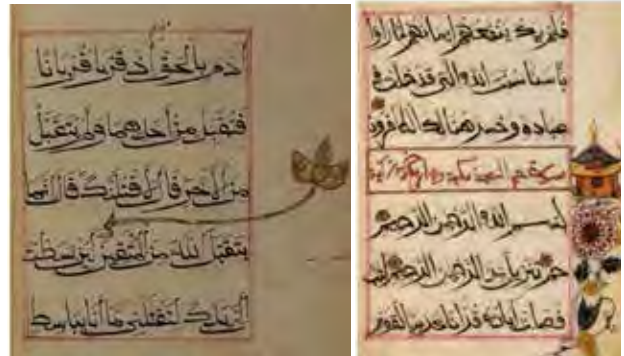 ادم بالحق اذ قربا قربانا
فتقبل من احدهما ولم يتقبل
من الاخر قال لاقتلنك قال انما
يتقبل الله من المتقين لئن بسطت
الي يدك لتقتلني ما انا بباسط
فلم يك ينفعهم ايمانهم لما راوا
باسنا سنت الله التي قد خلت في
عباده وخسر هنالك الكافرون
سورة حم السجدة مكية
بسم الله الرحمن الرحيم
حم تنزيل من الرحمن الرحيم كتاب
فصلت اياته قرانا عربيا لقوم